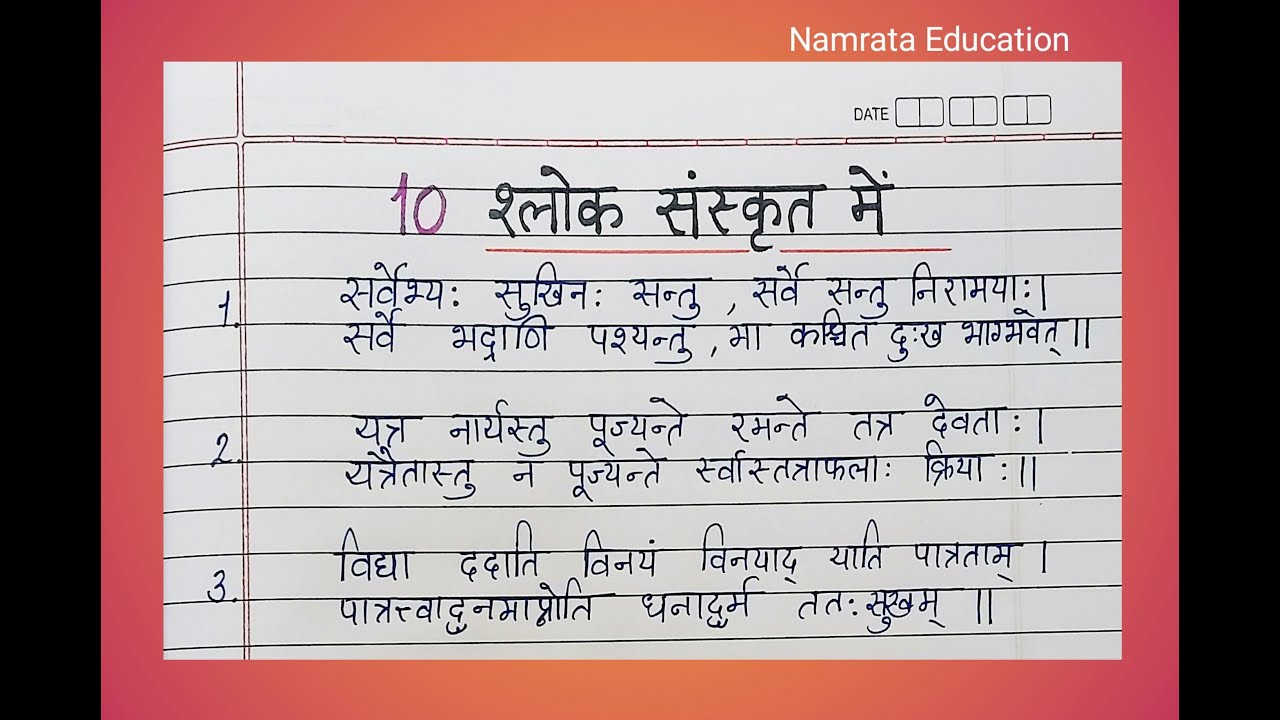 Namrata Education
DATE
10 श्लोक संस्कृत में
1. सर्वेभ्य: सुखिन: सन्तु , सर्वे सन्तु निरामया:।
सर्वे भद्राणि पश्यन्तु , मा कश्चित दु:ख भाग्भवेत् ॥
2. यत्र नार्यस्तु पूज्यन्ते रमन्ते तत्र देवता:।
यत्रैतास्तु न पूज्यन्ते र्स्वास्तत्राफला: क्रिया:॥
3. विद्या ददाति विनयं विनयाद् याति पात्रताम् ।
पात्रत्त्वाद्धनमाप्नोति धनाद्धर्म तत: सुखम् ॥